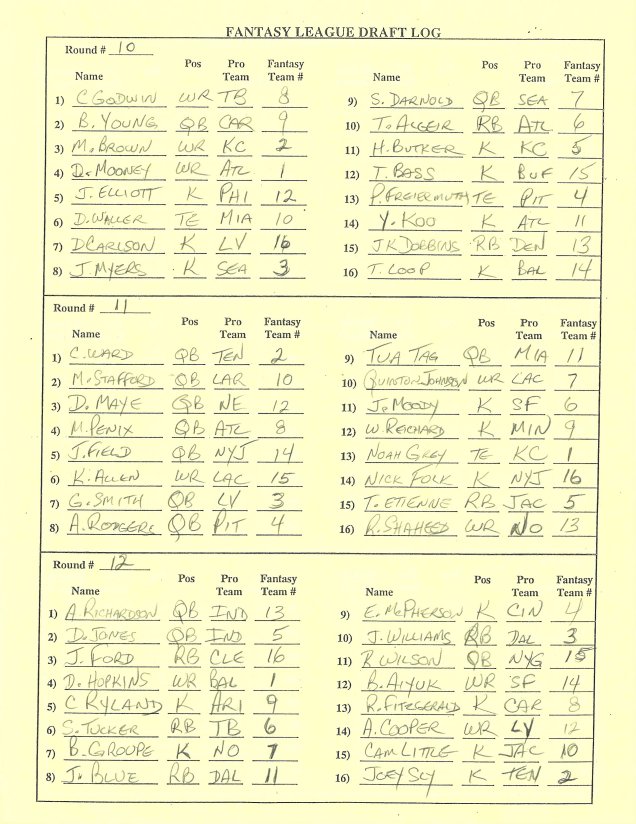 FANTASY LEAGUE DRAFT LOG
Round # 10
Name Pos Pro Team Fantasy Team #
1) C GODWIN WR TB 8
2) B. YOUNG QB CAR 9
3) M. BROWN WR KC 2
4) D. MOONEY WR ATL 1
5) J. ELLIOTT K PHI 12
6) D. WALLER TE MIA 10
7) D CARLSON K LV 16
8) J. MYERS K SEA 3
Name Pos Pro Team Fantasy Team #
9) S. DARNOLD QB SEA 7
10) T. ALGEIR RB ATL 6
11) H. BUTKER K KC 5
12) T. BASS K BUF 15
13) P. FREIERMUTH TE PIT 4
14) Y. KOO K ATL 11
15) J K DOBBINS RB DEN 13
16) T. LOOP K BAL 14
Round # 11
Name Pos Pro Team Fantasy Team #
1) C. WARD QB TEN 2
2) M. STAFFORD QB LAR 10
3) D. MAYE QB NE 12
4) M. PENIX QB ATL 8
5) J. FIELD QB NYJ 14
6) K. ALLEN WR LAC 15
7) G. SMITH QB LV 3
8) A. RODGERS QB PIT 4
Name Pos Pro Team Fantasy Team #
9) TUA TAG QB MIA 11
10) QUINTON JOHNSON WR LAC 7
11) J. MOODY K SF 6
12) W. REICHARD K MIN 9
13) NOAH GREY TE KC 1
14) NICK FOLK K NYJ 16
15) T. ETIENNE RB JAC 5
16) R. SHAHEED WR NO 13
Round # 12
Name Pos Pro Team Fantasy Team #
1) A RICHARDSON QB IND 13
2) D. JONES QB IND 5
3) J. FORD RB CLE 16
4) D. HOPKINS WR BAL 1
5) C RYLAND K ARI 9
6) S. TUCKER RB TB 6
7) B. GROUPE K NO 7
8) J. BLUE RB DAL 11
Name Pos Pro Team Fantasy Team #
9) E. McPHERSON K CIN 4
10) J. WILLIAMS RB DAL 3
11) R WILSON QB NYG 15
12) B. AIYUK WR SF 14
13) R. FITZGERALD K CAR 8
14) A. COOPER WR LV 12
15) CAM LITTLE K JAC 10
16) JOEY SLY K TEN 2